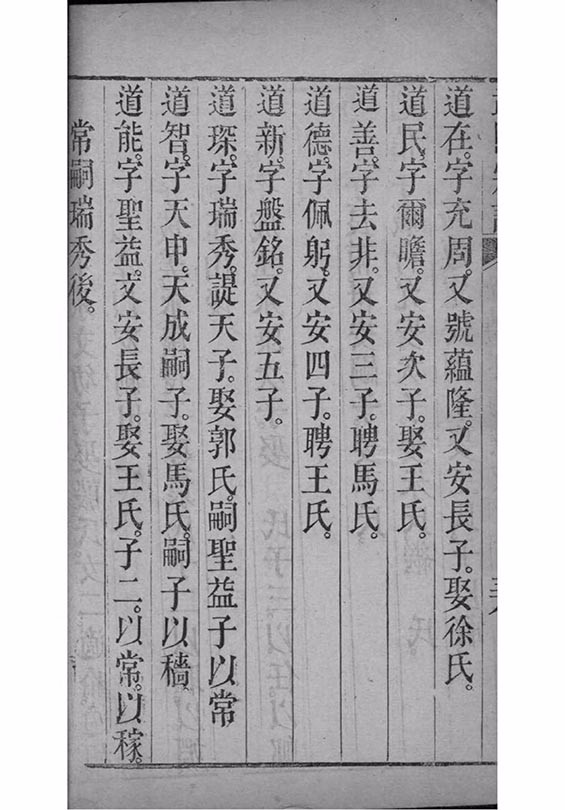 道在。字充周。又號蘊隆。又安長子。娶徐氏。
道民。字爾瞻。又安次子。娶王氏。
道善。字去非。又安三子。聘馬氏。
道德。字佩躬。又安四子。聘王氏。
道新。字盤銘。又安五子。
道琛。字瑞秀。諟天子。娶郭氏。嗣聖益子以常
道智。字天申。天成嗣子。娶馬氏。嗣子以穡。
道能。字聖益。文安長子。娶王氏。子二。以常。以稼。
常嗣瑞秀後。